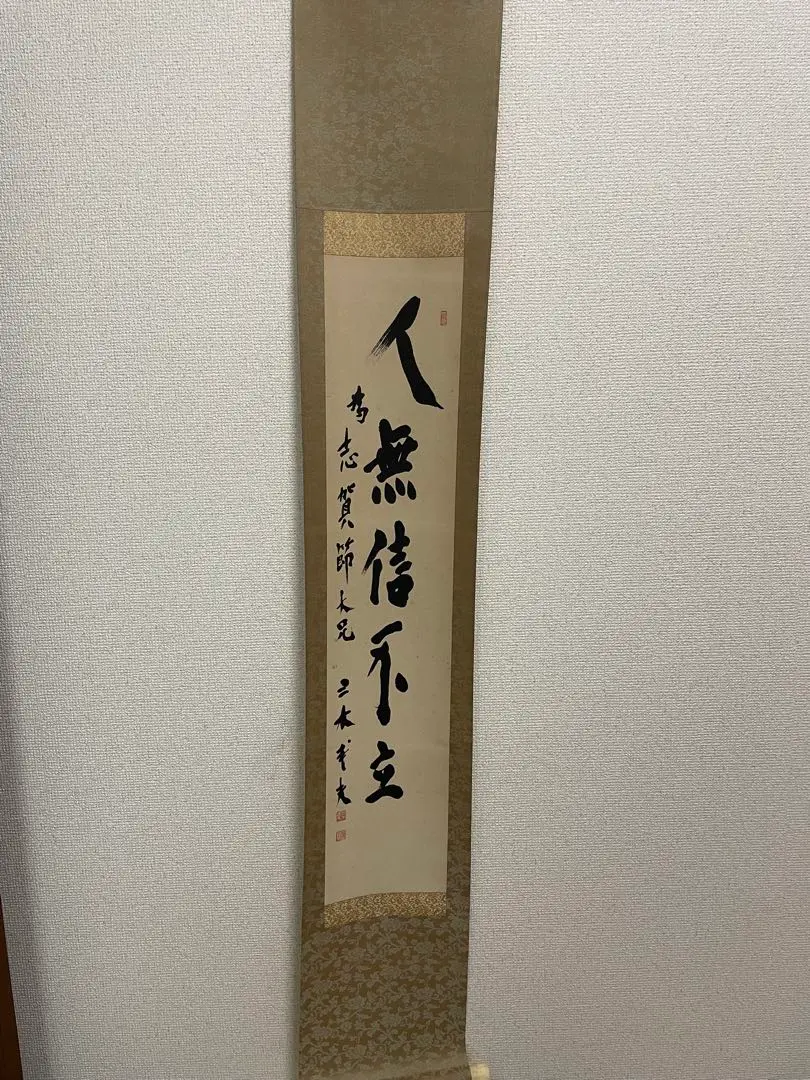 人無信不立
為志賀節大兄 三木武夫